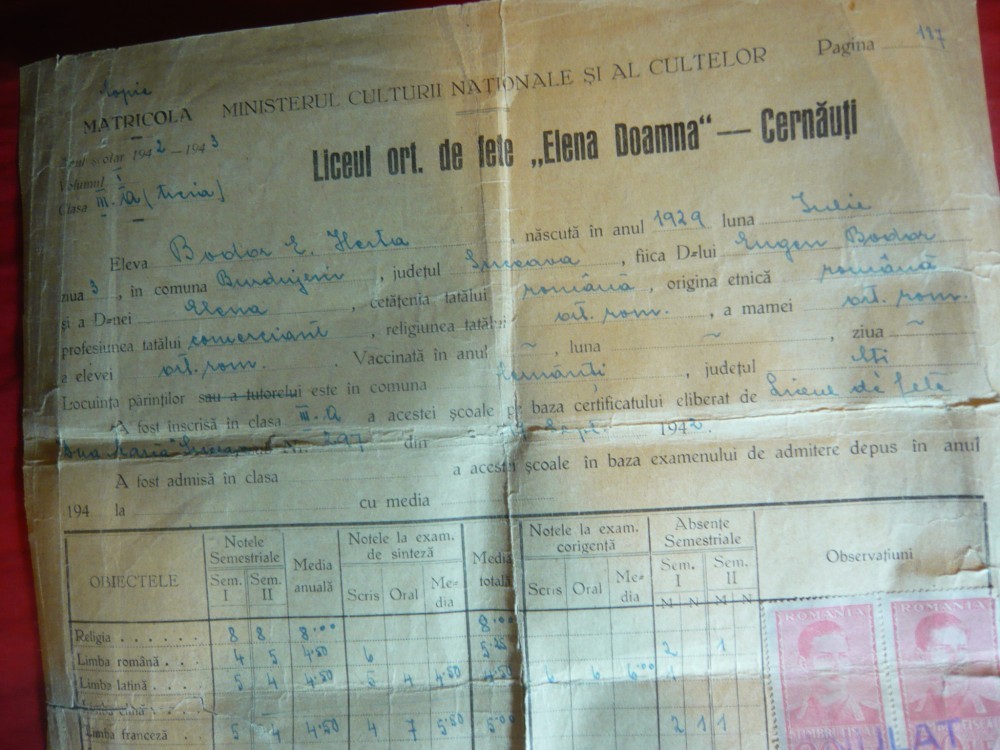 Pagina 187
copie
MATRICOLA
MINISTERUL CULTURII NAȚIONALE ȘI AL CULTELOR
Anul școlar 1942—1943
Volumul I
Clasa III-A (treia)
Liceul ort. de fete „Elena Doamna“ — Cernăuți
Eleva Bodor E. Herta, născută în anul 1929 luna Iulie
ziua 3, în comuna Burdujeni, județul Suceava, fiica D-lui Eugen Bodor
și a D-nei Elena, cetățenia tatălui română, origina etnică română
profesiunea tatălui comerciant, religiunea tatălui ort. rom., a mamei ort. rom.
a elevei ort. rom. Vaccinată în anul ~, luna ~, ziua ~
Locuința părinților sau a tutorelui este în comuna Cernăuți, județul
A fost înscrisă în clasa III-A a acestei școale pe baza certificatului eliberat de Liceul de fete
Nr. 297 din Sept. 1942.
A fost admisă în clasa a acestei școale în baza examenului de admitere depus în anul
194 la cu media
OBIECTELE
Notele Semestriale
Sem. I
Sem. II
Media anuală
Notele la exam. de sinteză
Scris Oral Me=dia
Media totală
Notele la exam. corigență
Scris Oral Me=dia
Absențe Semestriale
Sem. I
Sem. II
M N M N
Observațiuni
Religia 8 8 8.00 8.00
Limba română 4 5 4.50 6 5.25 2 1
Limba latină 5 4 4.50 5 4 4.50 4.50 6 6 6.00 1
Limba elină
Limba franceză 5 4 4.50 4 7 5.50 5.00 2 1 1
ROMANIA
ROMANIA